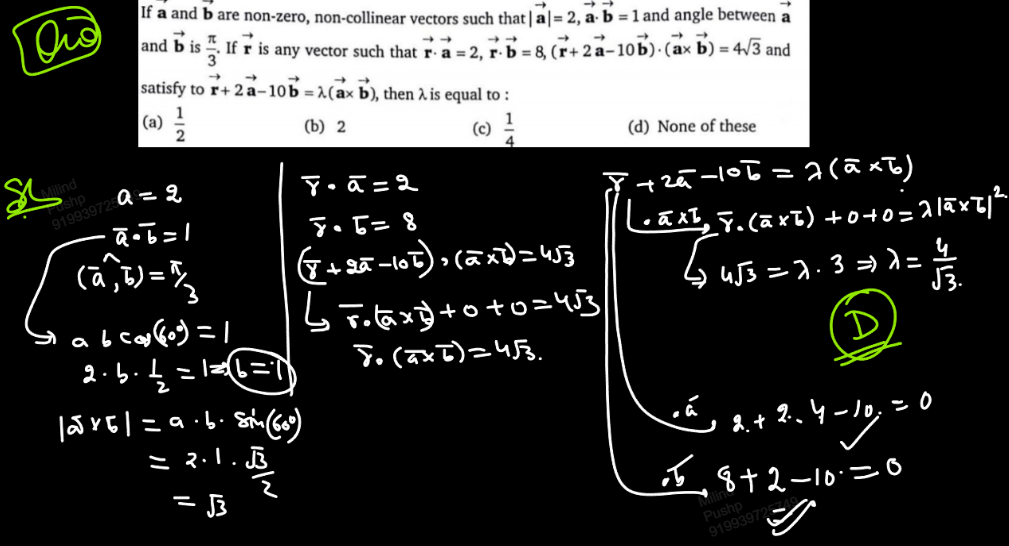 Que
If a⃗ and b⃗ are non-zero, non-collinear vectors such that |a⃗| = 2, a⃗·b⃗ = 1 and angle between a⃗
and b⃗ is π/3. If r⃗ is any vector such that r⃗·a⃗ = 2, r⃗·b⃗ = 8, (r⃗+2a⃗−10b⃗)·(a⃗×b⃗) = 4√3 and
satisfy to r⃗+2a⃗−10b⃗ = λ(a⃗×b⃗), then λ is equal to :
(a) 1/2 (b) 2 (c) 1/4 (d) None of these
Sol
a = 2
a̅·b̅ = 1
(a̅,^b̅) = π/3
a b cos(60°) = 1
2·b·1/2 = 1 ⇒ b = 1
|a̅×b̅| = a·b·sin(60°)
= 2·1·√3/2
= √3
r̅·a̅ = 2
r̅·b̅ = 8
(r̅+2a̅−10b̅)·(a̅×b̅) = 4√3
r̅·(a̅×b̅)+0+0 = 4√3
r̅·(a̅×b̅) = 4√3.
r̅+2a̅−10b̅ = λ(a̅×b̅)
·a̅×b̅, r̅·(a̅×b̅)+0+0 = λ|a̅×b̅|²
4√3 = λ·3 ⇒ λ = 4/√3.
D
·a̅ 2+2·4−10 = 0
·b̅ 8+2−10 = 0
Milind
Pushp
919939725749